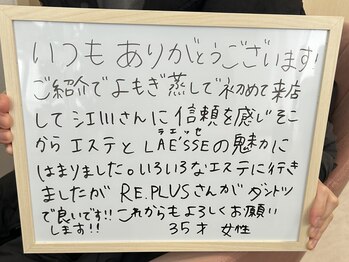 いつもありがとうございます
ご紹介でよもぎ蒸しで初めて来店
して江川さんに信頼を感じそこ
ラエッセ
からエステとLAĒSSEの魅力に
はまりました。いろいろなエステに行き
ましたがRE.PLUSさんがダントツ
で良いです!!これからもよろしくお願い
します!! 35才 女性